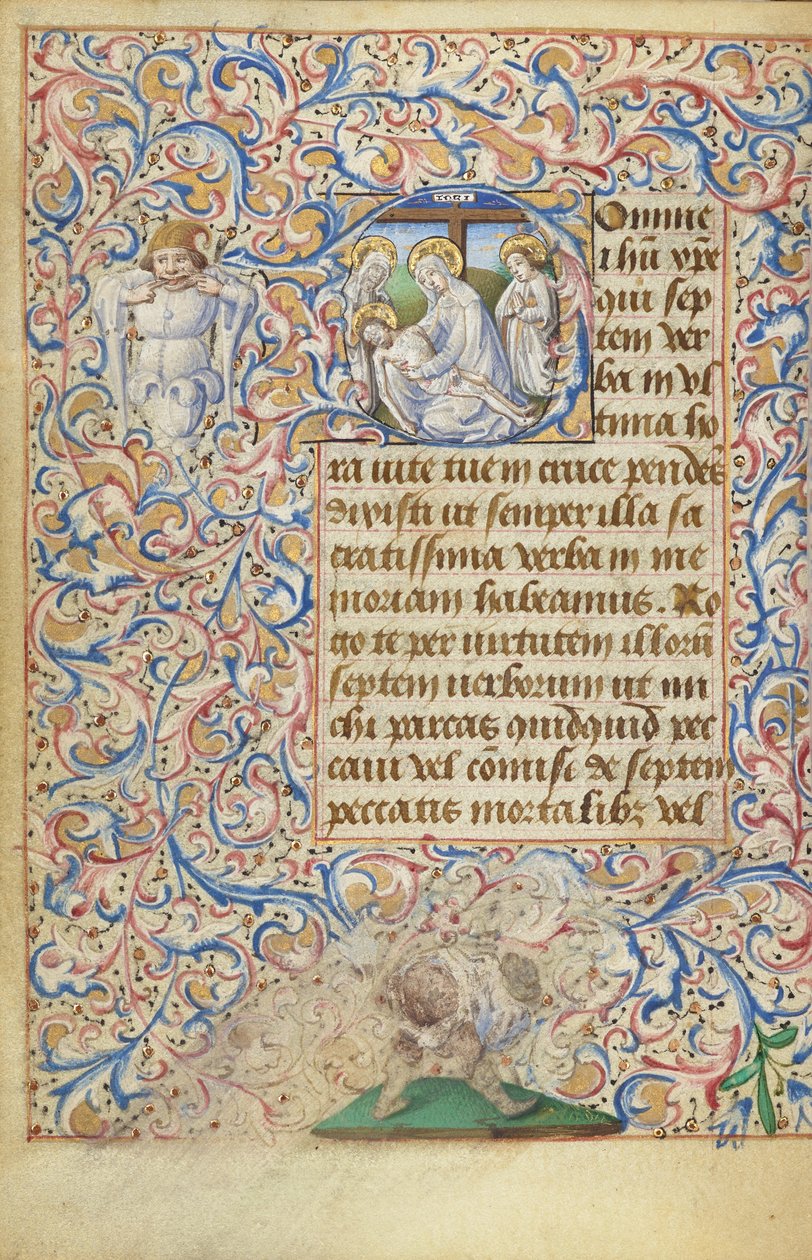 INRI
Omine
ihũ xp̃e
qui sep
tem ver
ba in vl
tima ho
ra uite tue in cruce pendẽs
dixisti ut semper illa sa
cratissima verba in me
moriam habeamus. Ro
go te per uirtutem illorũ
septem uerborum ut mi
chi parcas quidquid pec
caui vel cõmisi de septem
peccatis mortalibz vel